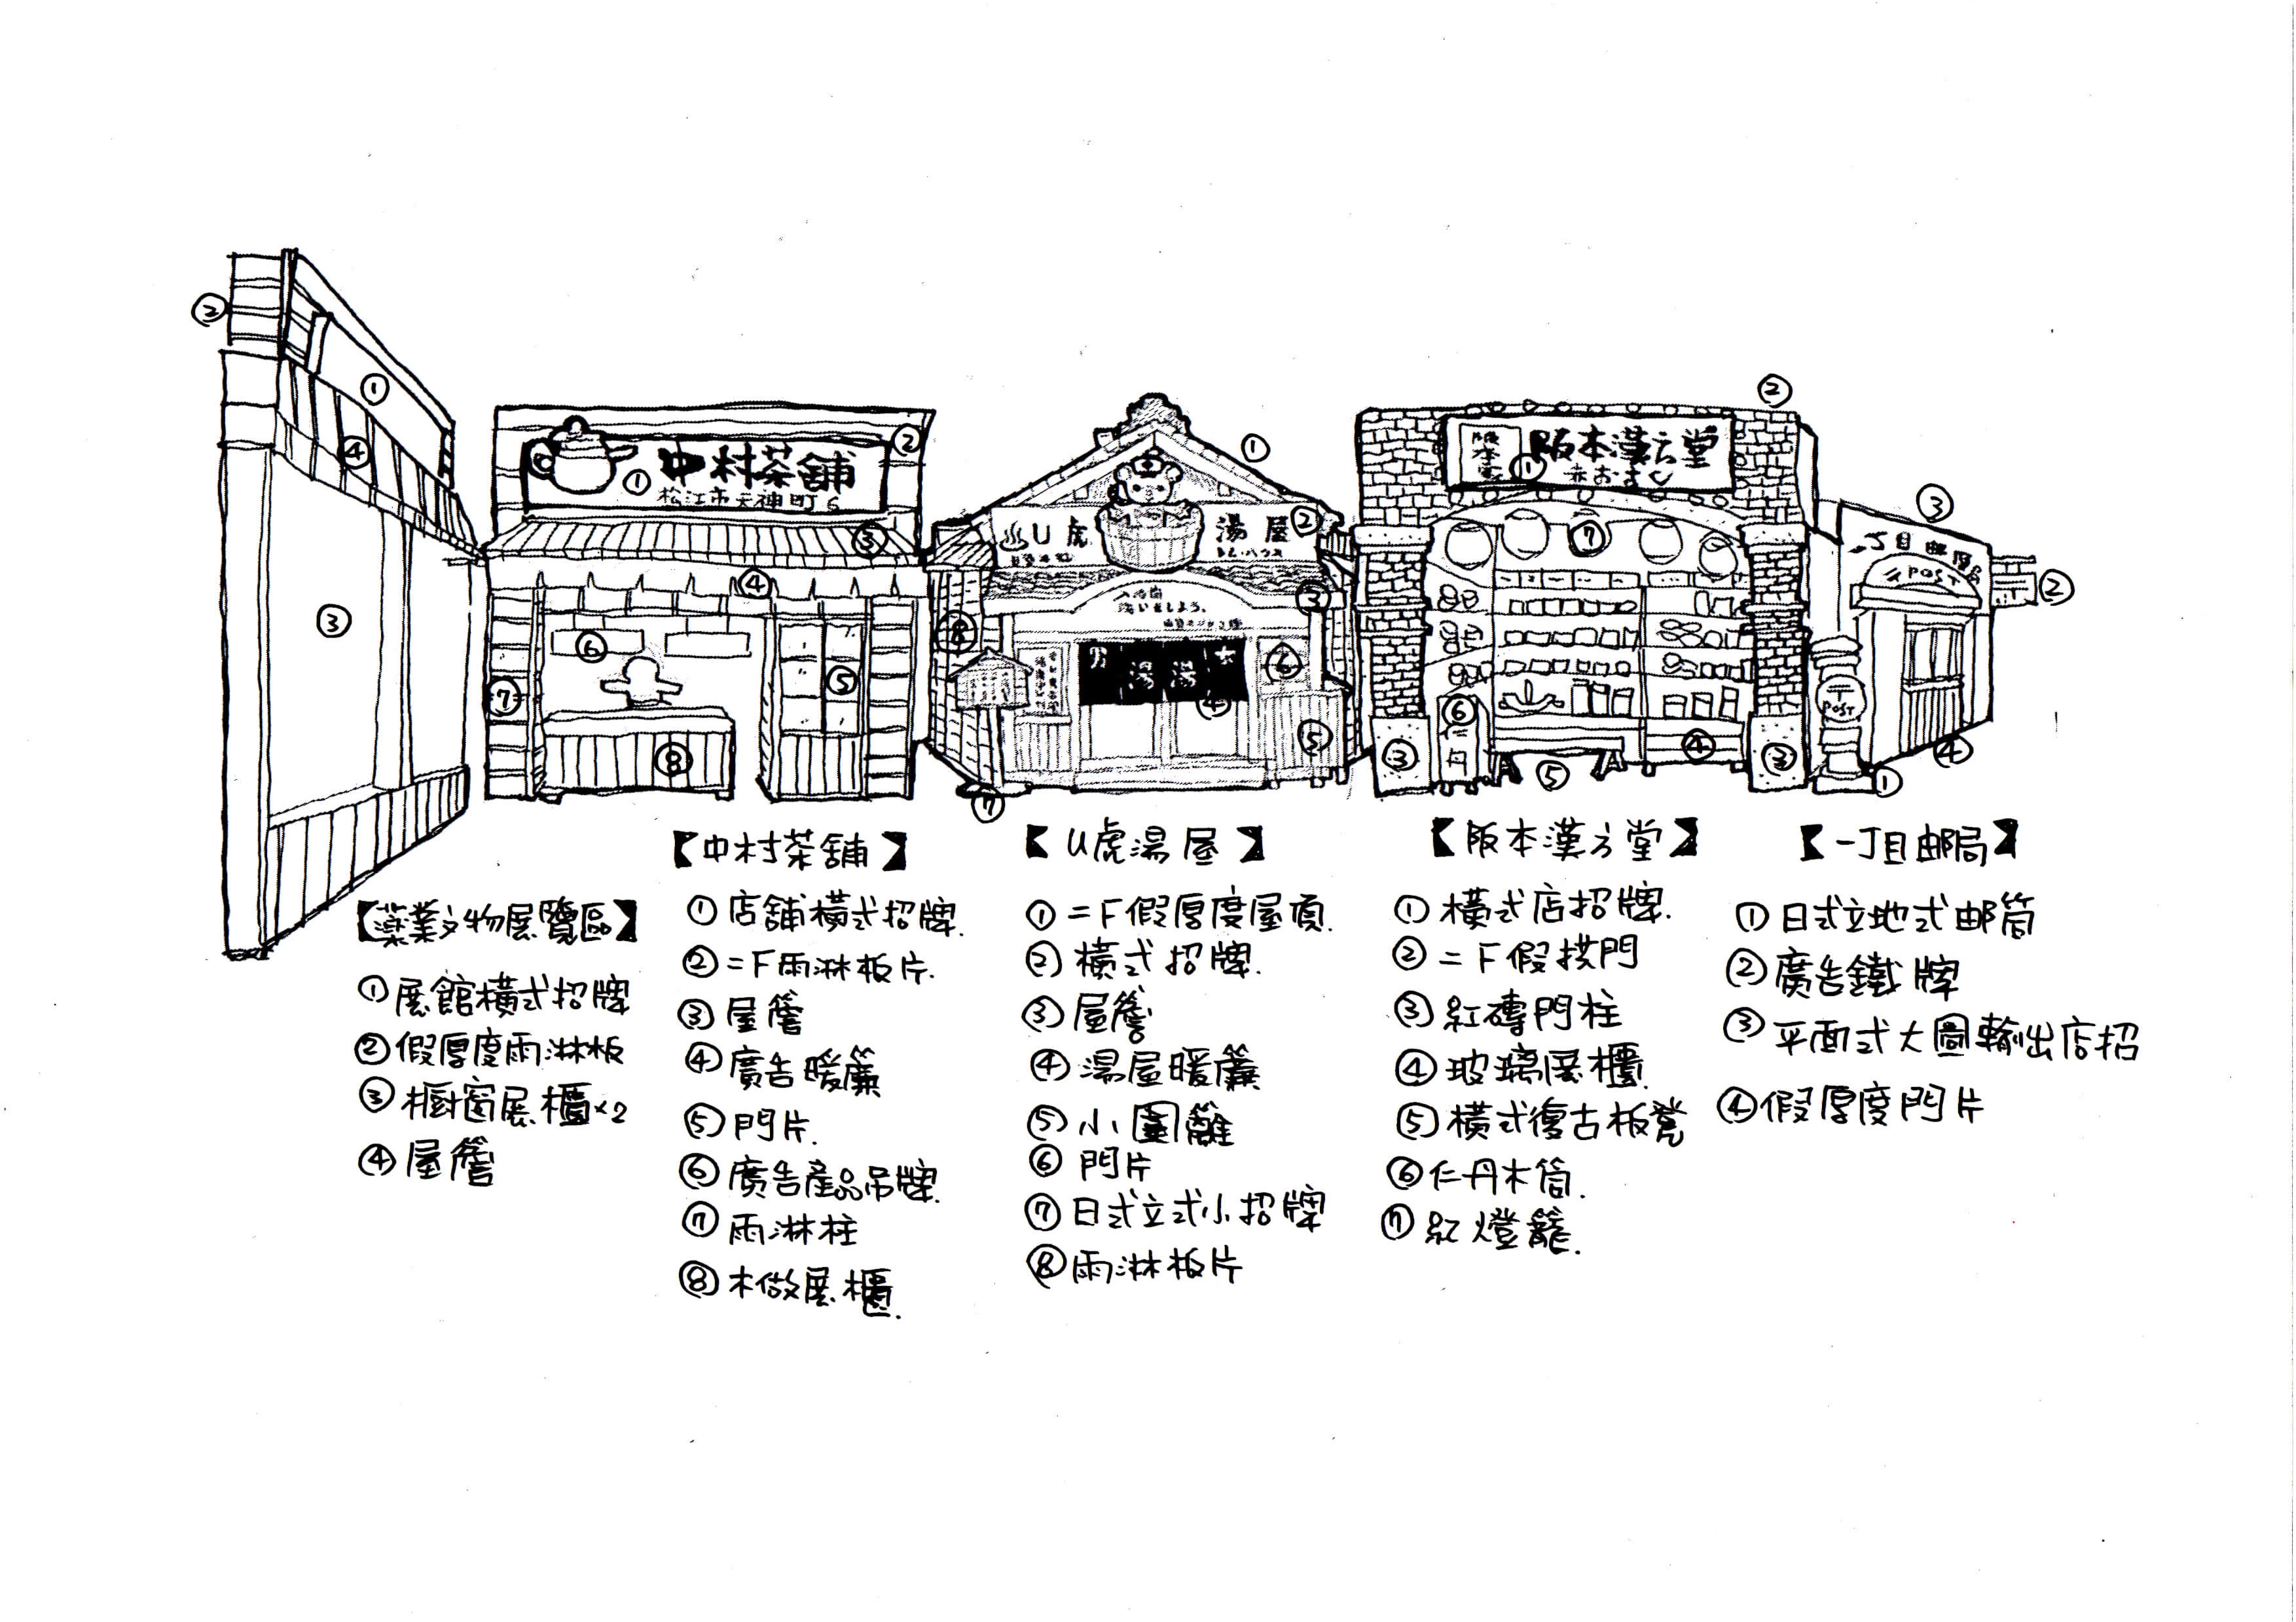 中村茶舖
松江市天神町6
U虎 湯屋
男 湯 湯 女
阪本漢方堂
丁目郵局
POST
〒
POST
仁丹
【中村茶舖】
①店舖橫式招牌.
②二F雨淋板片.
③屋簷
④廣告暖簾
⑤門片.
⑥廣告產品吊牌.
⑦雨淋柱
⑧木做展櫃.
【U虎湯屋】
①二F假厚度屋頂.
②橫式招牌.
③屋簷
④湯屋暖簾
⑤小圍籬
⑥門片
⑦日式立式小招牌
⑧雨淋板片
【阪本漢方堂】
①橫式店招牌.
②二F假拱門
③紅磚門柱
④玻璃展櫃
⑤橫式復古板凳
⑥仁丹木筒.
⑦紅燈籠.
【一丁目邮局】
①日式立地式邮筒
②廣告鐵牌
③平面式大圖輸出店招
④假厚度門片
【藥業文物展覽區】
①展館橫式招牌
②假厚度雨淋板
③櫥窗展櫃×2
④屋簷